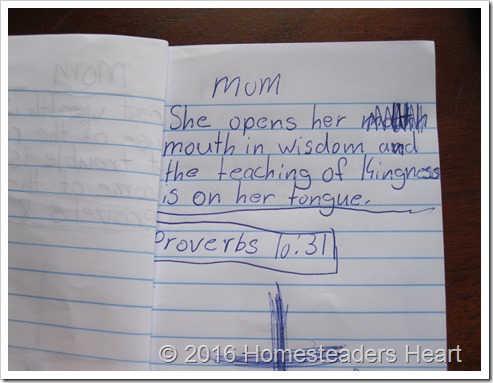 mum
She opens her
mouth in wisdom and
the teaching of Kingness
is on her tongue.
Proverbs 10:31
© 2016 Homesteaders Heart